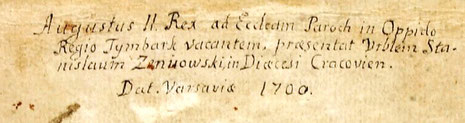 Augustus II. Rex ad Eccleam Paroch in Oppido
Regio Tymbark vacantem, præsentat Vrblem Sta-
nislaum Zenuowski, in Diæcesi Cracovien.
Dat. Varsaviæ 1700.